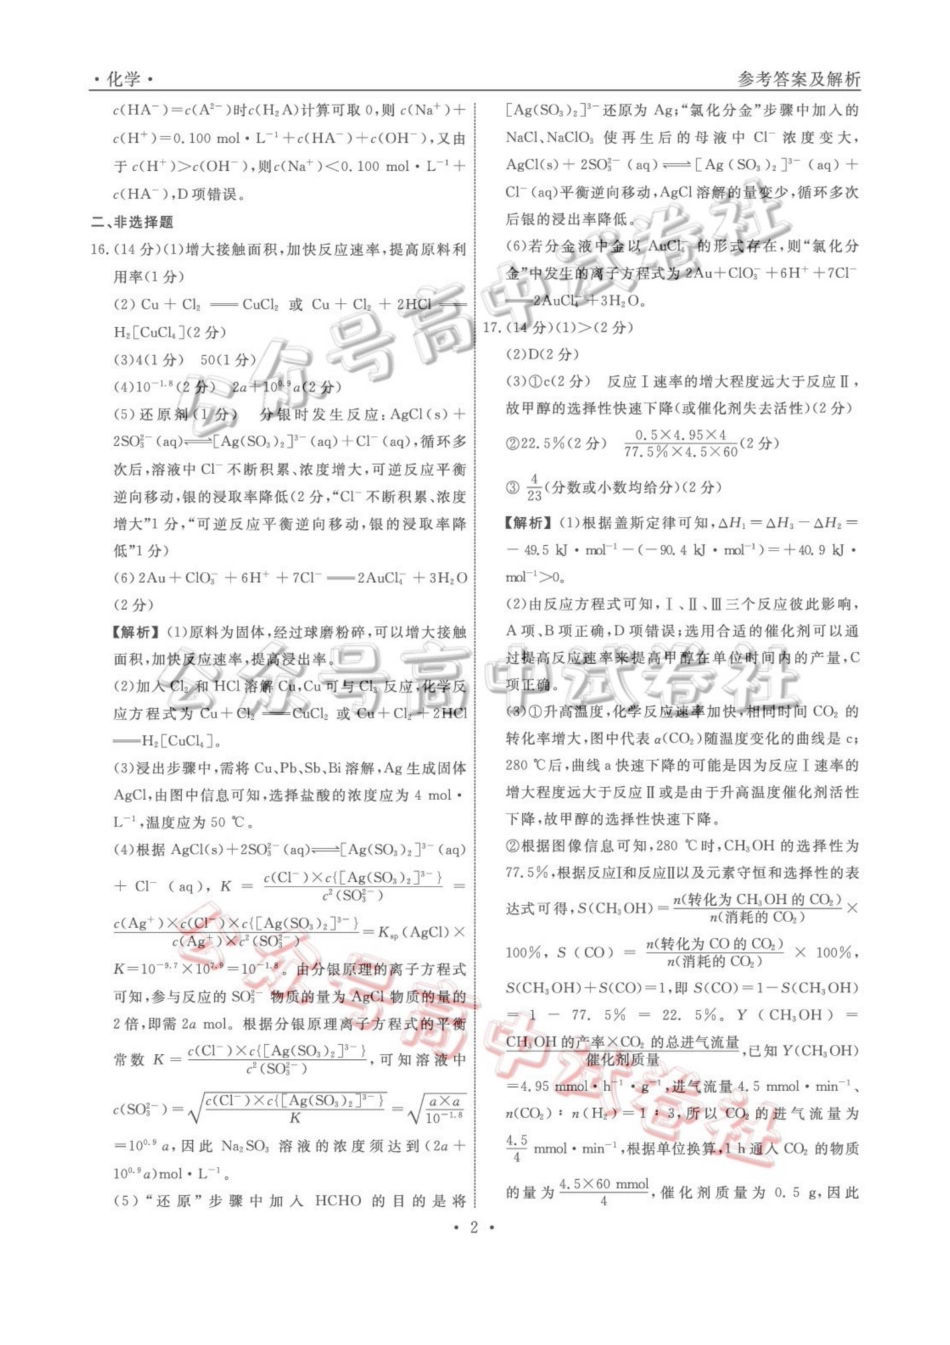 ·化学·
参考答案及解析
c(HA⁻)=c(A²⁻)时c(H₂A)计算可取0,则c(Na⁺)+
c(H⁺)=0.100 mol·L⁻¹+c(HA⁻)+c(OH⁻),又由
于c(H⁺)>c(OH⁻),则c(Na⁺)<0.100 mol·L⁻¹+
c(HA⁻),D项错误。
二、非选择题
16.(14分)(1)增大接触面积,加快反应速率,提高原料利
用率(1分)
(2) Cu+Cl₂══CuCl₂ 或 Cu+Cl₂+2HCl══
H₂[CuCl₄](2分)
(3)4(1分) 50(1分)
(4)10⁻¹·⁸(2分) 2a+10⁰·⁹a(2分)
(5)还原剂(1分) 分银时发生反应:AgCl(s)+
2SO₃²⁻(aq)⇌[Ag(SO₃)₂]³⁻(aq)+Cl⁻(aq),循环多
次后,溶液中Cl⁻不断积累、浓度增大,可逆反应平衡
逆向移动,银的浸取率降低(2分,“Cl⁻不断积累、浓度
增大”1分,“可逆反应平衡逆向移动,银的浸取率降
低”1分)
(6)2Au+ClO₃⁻+6H⁺+7Cl⁻══2AuCl₄⁻+3H₂O
(2分)
【解析】(1)原料为固体,经过球磨粉碎,可以增大接触
面积,加快反应速率,提高浸出率。
(2)加入Cl₂和HCl溶解Cu,Cu可与Cl₂反应,化学反
应方程式为Cu+Cl₂══CuCl₂或Cu+Cl₂+2HCl
══H₂[CuCl₄]。
(3)浸出步骤中,需将Cu、Pb、Sb、Bi溶解,Ag生成固体
AgCl,由图中信息可知,选择盐酸的浓度应为4 mol·
L⁻¹,温度应为50 ℃。
(4)根据AgCl(s)+2SO₃²⁻(aq)⇌[Ag(SO₃)₂]³⁻(aq)
+Cl⁻(aq),K = c(Cl⁻)×c{[Ag(SO₃)₂]³⁻}/c²(SO₃²⁻) =
c(Ag⁺)×c(Cl⁻)×c{[Ag(SO₃)₂]³⁻}/c(Ag⁺)×c²(SO₃²⁻)=Kₛₚ(AgCl)×
K=10⁻⁹·⁷×10⁷·⁹=10⁻¹·⁸。由分银原理的离子方程式
可知,参与反应的SO₃²⁻物质的量为AgCl物质的量的
2倍,即需2a mol。根据分银原理离子方程式的平衡
常数 K = c(Cl⁻)×c{[Ag(SO₃)₂]³⁻}/c²(SO₃²⁻),可知溶液中
c(SO₃²⁻)=√(c(Cl⁻)×c{[Ag(SO₃)₂]³⁻}/K)=√(a×a/10⁻¹·⁸)
=10⁰·⁹a,因此Na₂SO₃溶液的浓度须达到(2a+
10⁰·⁹a)mol·L⁻¹。
(5)“还原”步骤中加入HCHO的目的是将
[Ag(SO₃)₂]³⁻还原为Ag;“氯化分金”步骤中加入的
NaCl、NaClO₃使再生后的母液中Cl⁻浓度变大,
AgCl(s)+2SO₃²⁻(aq)⇌[Ag(SO₃)₂]³⁻(aq)+
Cl⁻(aq)平衡逆向移动,AgCl溶解的量变少,循环多次
后银的浸出率降低。
(6)若分金液中金以AuCl₄⁻的形式存在,则“氯化分
金”中发生的离子方程式为2Au+ClO₃⁻+6H⁺+7Cl⁻
══2AuCl₄⁻+3H₂O。
17.(14分)(1)>(2分)
(2)D(2分)
(3)①c(2分) 反应Ⅰ速率的增大程度远大于反应Ⅱ,
故甲醇的选择性快速下降(或催化剂失去活性)(2分)
②22.5%(2分) 0.5×4.95×4/77.5%×4.5×60(2分)
③ 4/23(分数或小数均给分)(2分)
【解析】(1)根据盖斯定律可知,△H₁=△H₃-△H₂=
-49.5 kJ·mol⁻¹-(-90.4 kJ·mol⁻¹)=+40.9 kJ·
mol⁻¹>0。
(2)由反应方程式可知,Ⅰ、Ⅱ、Ⅲ三个反应彼此影响,
A项、B项正确,D项错误;选用合适的催化剂可以通
过提高反应速率来提高甲醇在单位时间内的产量,C
项正确。
(3)①升高温度,化学反应速率加快,相同时间CO₂的
转化率增大,图中代表α(CO₂)随温度变化的曲线是c;
280 ℃后,曲线a快速下降的可能是因为反应Ⅰ速率的
增大程度远大于反应Ⅱ或是由于升高温度催化剂活性
下降,故甲醇的选择性快速下降。
②根据图像信息可知,280 ℃时,CH₃OH的选择性为
77.5%,根据反应Ⅰ和反应Ⅱ以及元素守恒和选择性的表
达式可得,S(CH₃OH)=n(转化为CH₃OH的CO₂)/n(消耗的CO₂)×
100%,S(CO)=n(转化为CO的CO₂)/n(消耗的CO₂)×100%,
S(CH₃OH)+S(CO)=1,即S(CO)=1-S(CH₃OH)
=1-77.5%=22.5%。Y(CH₃OH)=
CH₃OH的产率×CO₂的总进气流量/催化剂质量,已知Y(CH₃OH)
=4.95 mmol·h⁻¹·g⁻¹,进气流量4.5 mmol·min⁻¹、
n(CO₂):n(H₂)=1:3,所以CO₂的进气流量为
4.5/4 mmol·min⁻¹,根据单位换算,1 h通入CO₂的物质
的量为4.5×60 mmol/4,催化剂质量为0.5 g,因此
·2·
公众号高中试卷社
公众号高中试卷社
公众号高中试卷社